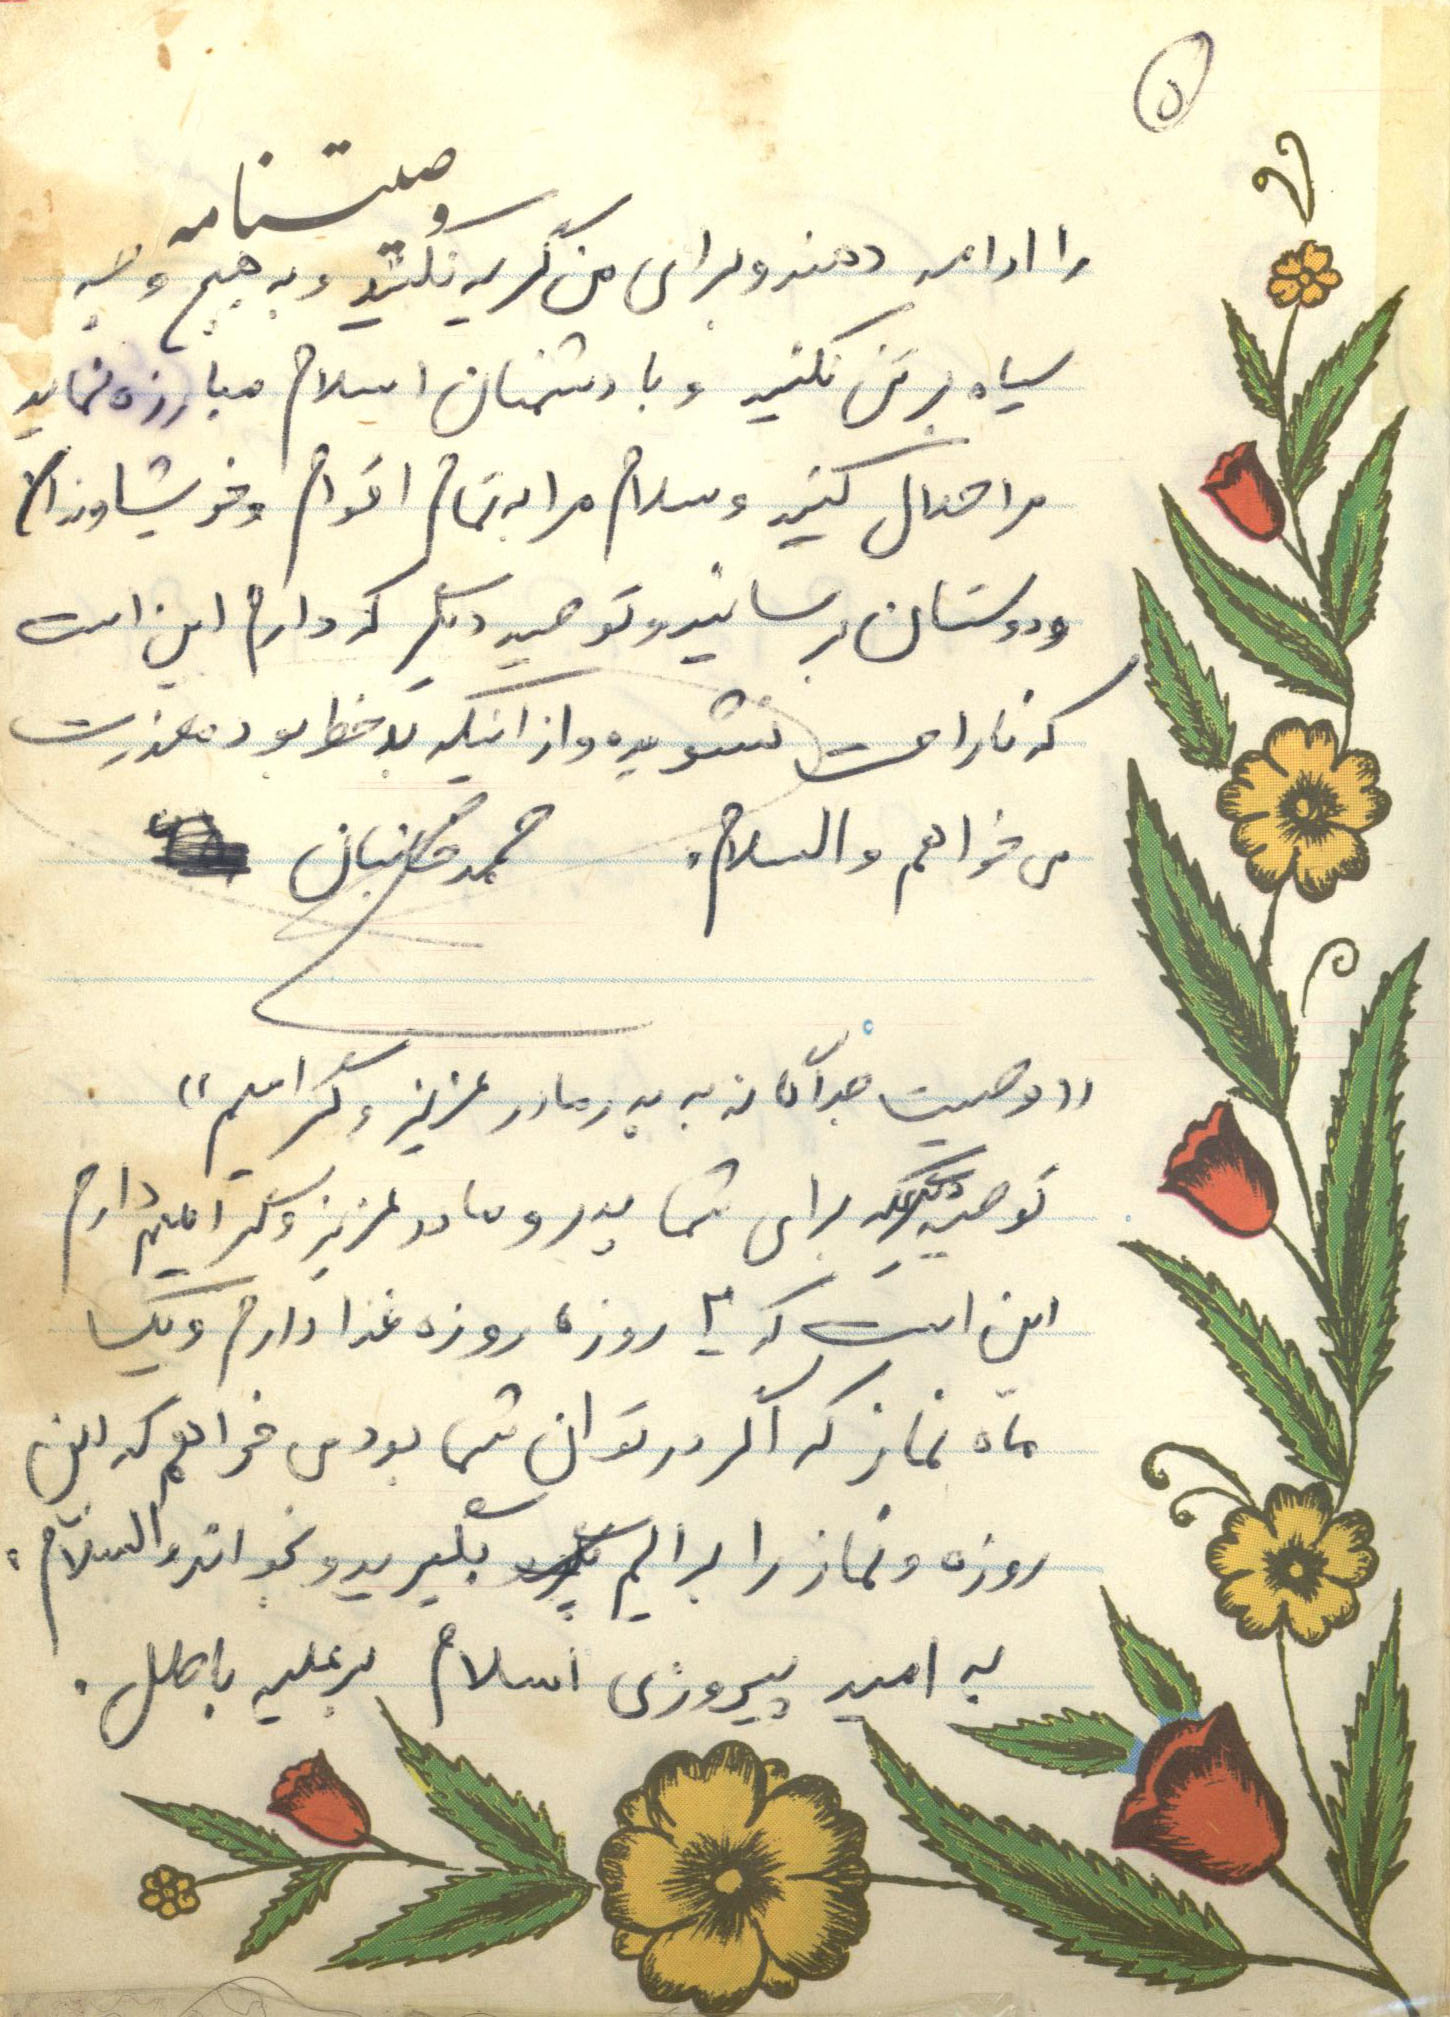 ۵
وصیتنامه
را ادامه دهند و برای من گریه نکنید و به هیچ وجه
سیاه بر تن نکنید و با دشمنان اسلام مبارزه نماید
مرا حلال کنید و سلام مرا به تمام اقوام و خویشاوندان
و دوستان برسانید و توصیه دیگر که دارم این است
که ناراحت نشوید و از اینکه بد خط بود معذرت
می خواهم والسلام.
((وصیت جداگانه به پدر مادر عزیز و گرامیم))
توصیه برای شما پدر و مادر عزیز و گرامیم دارم
این است که روزه غذا دارم و یک
ماه نماز که اگر در توان شما بود می خواهم که این
روزه و نماز را برایم بگیرید و بخواند والسلام.
به امید پیروزی اسلام بر علیه باطل.